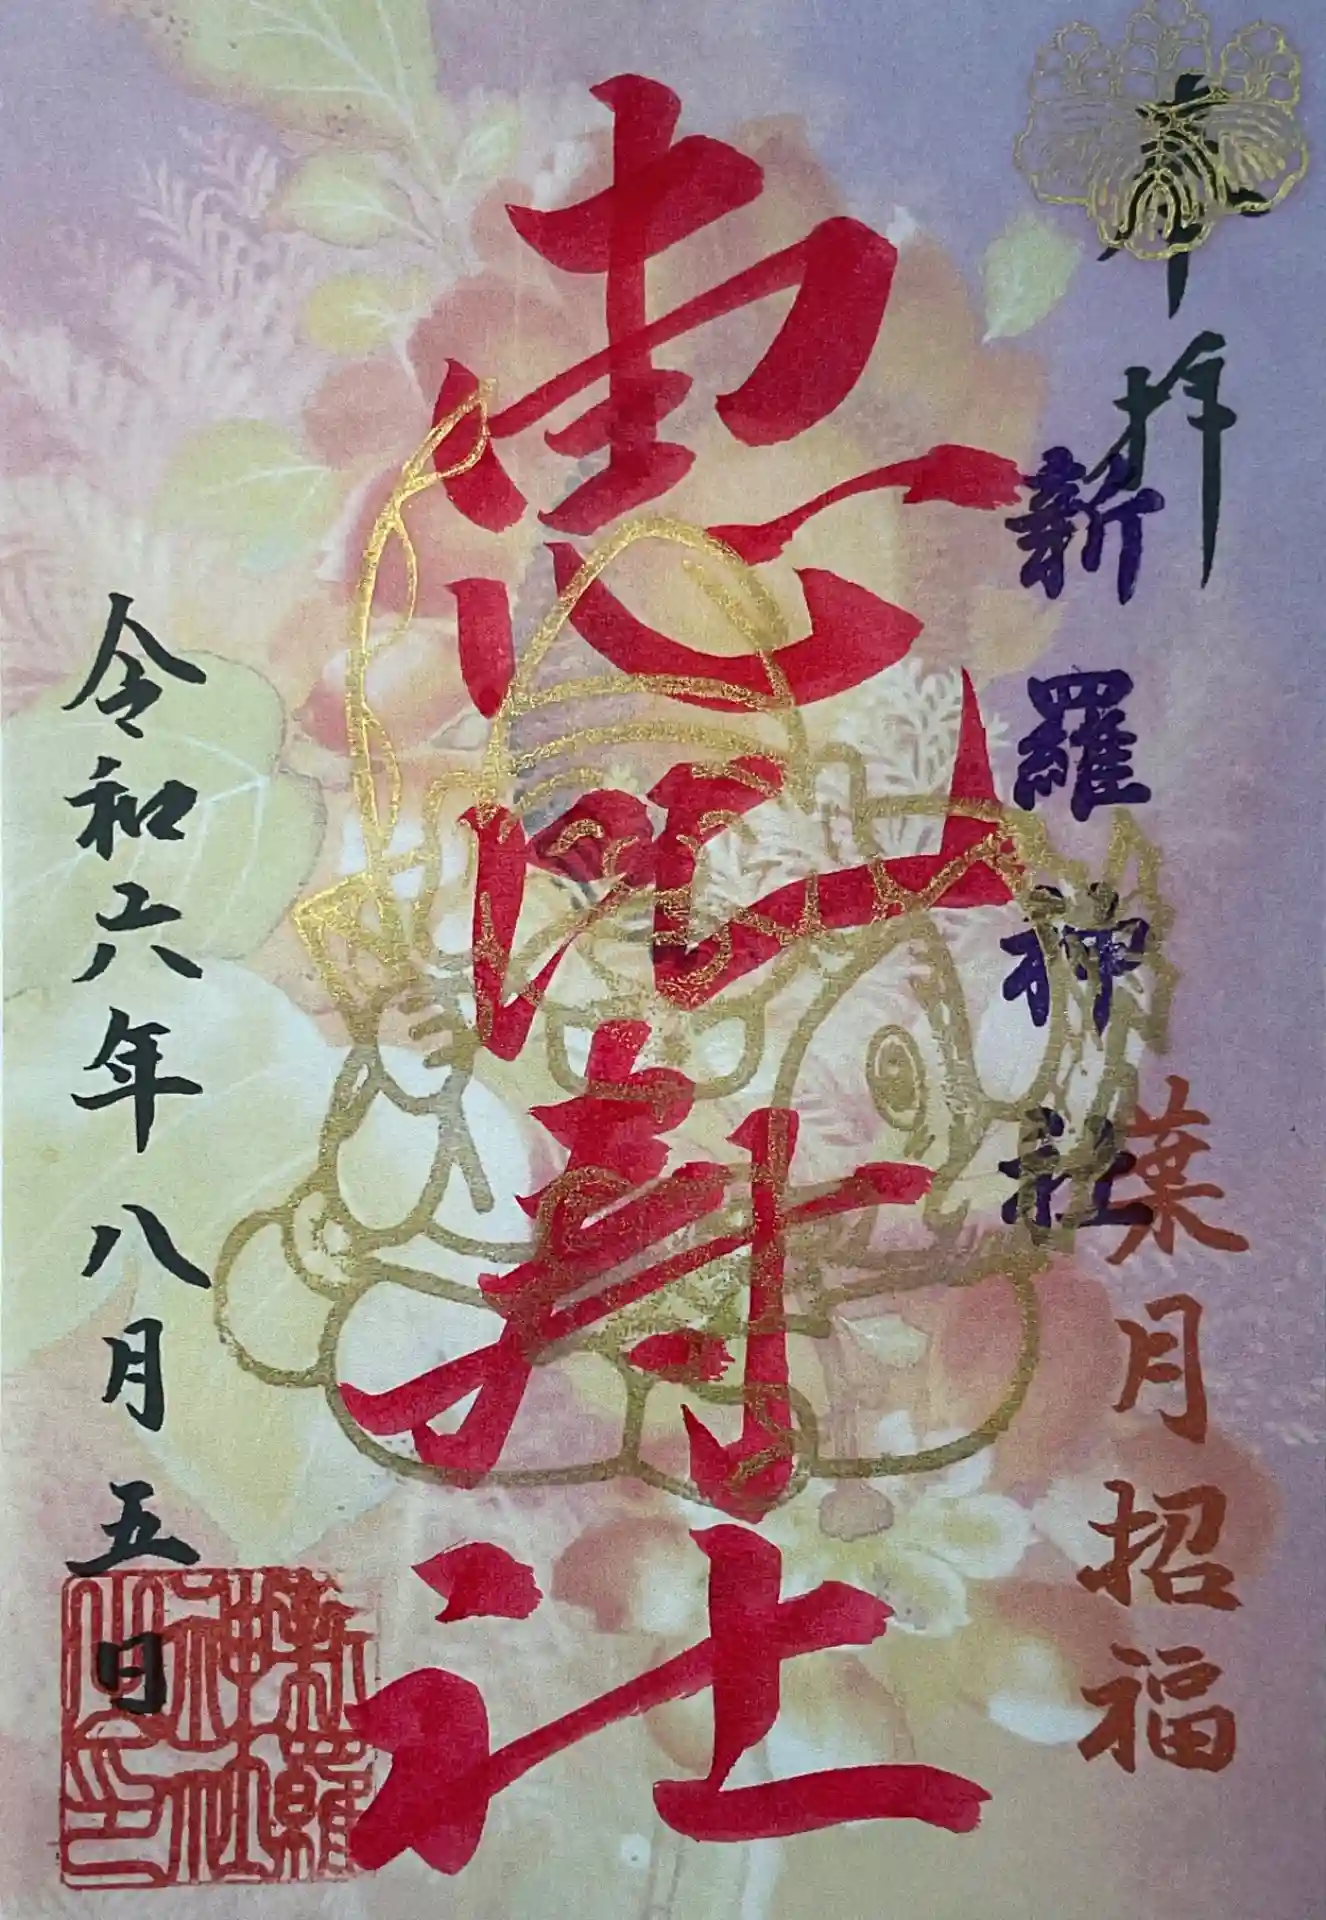 奉拝
葉月招福
新羅神社
恵比寿社
令和六年八月五日
新羅
神社
之印